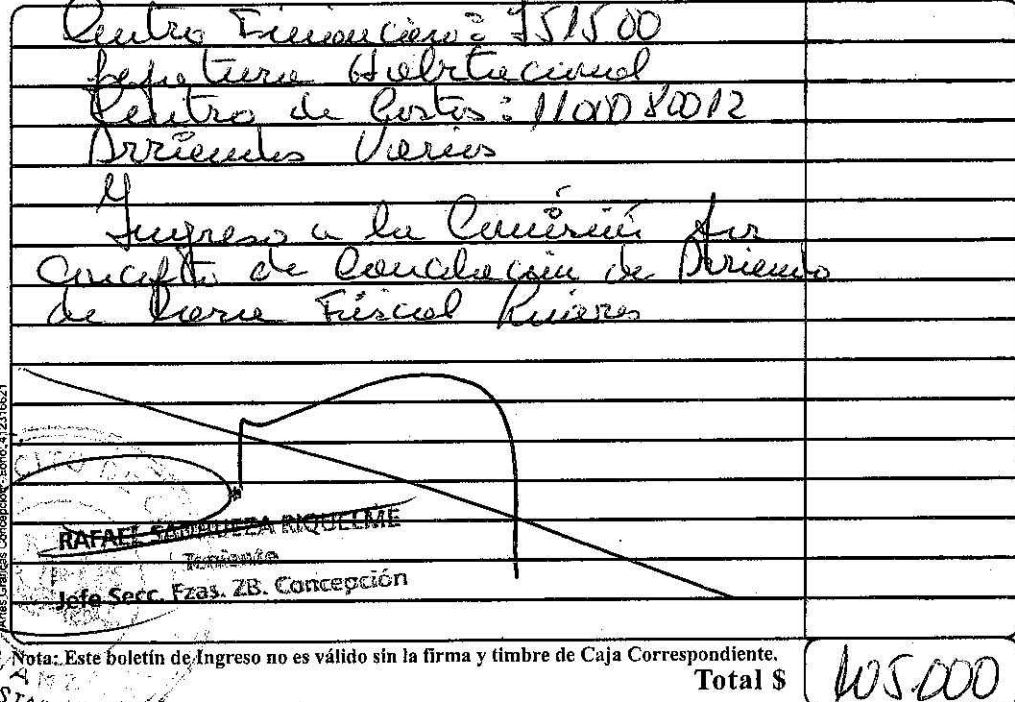 Centro Financiero: 751500
Jefatura Habitacional
Centro de Costos: 1100080012
Arriendos Varios
Ingreso a la Comisión por
concepto de Cancelación de Arriendo
de Casa Fiscal
RAFAEL SANHUEZA RIQUELME
Teniente
Jefe Secc. Fzas. ZB. Concepción
Artes Gráficas Concepción - Fono: 412316621
Nota: Este boletín de Ingreso no es válido sin la firma y timbre de Caja Correspondiente.
Total $ 105.000